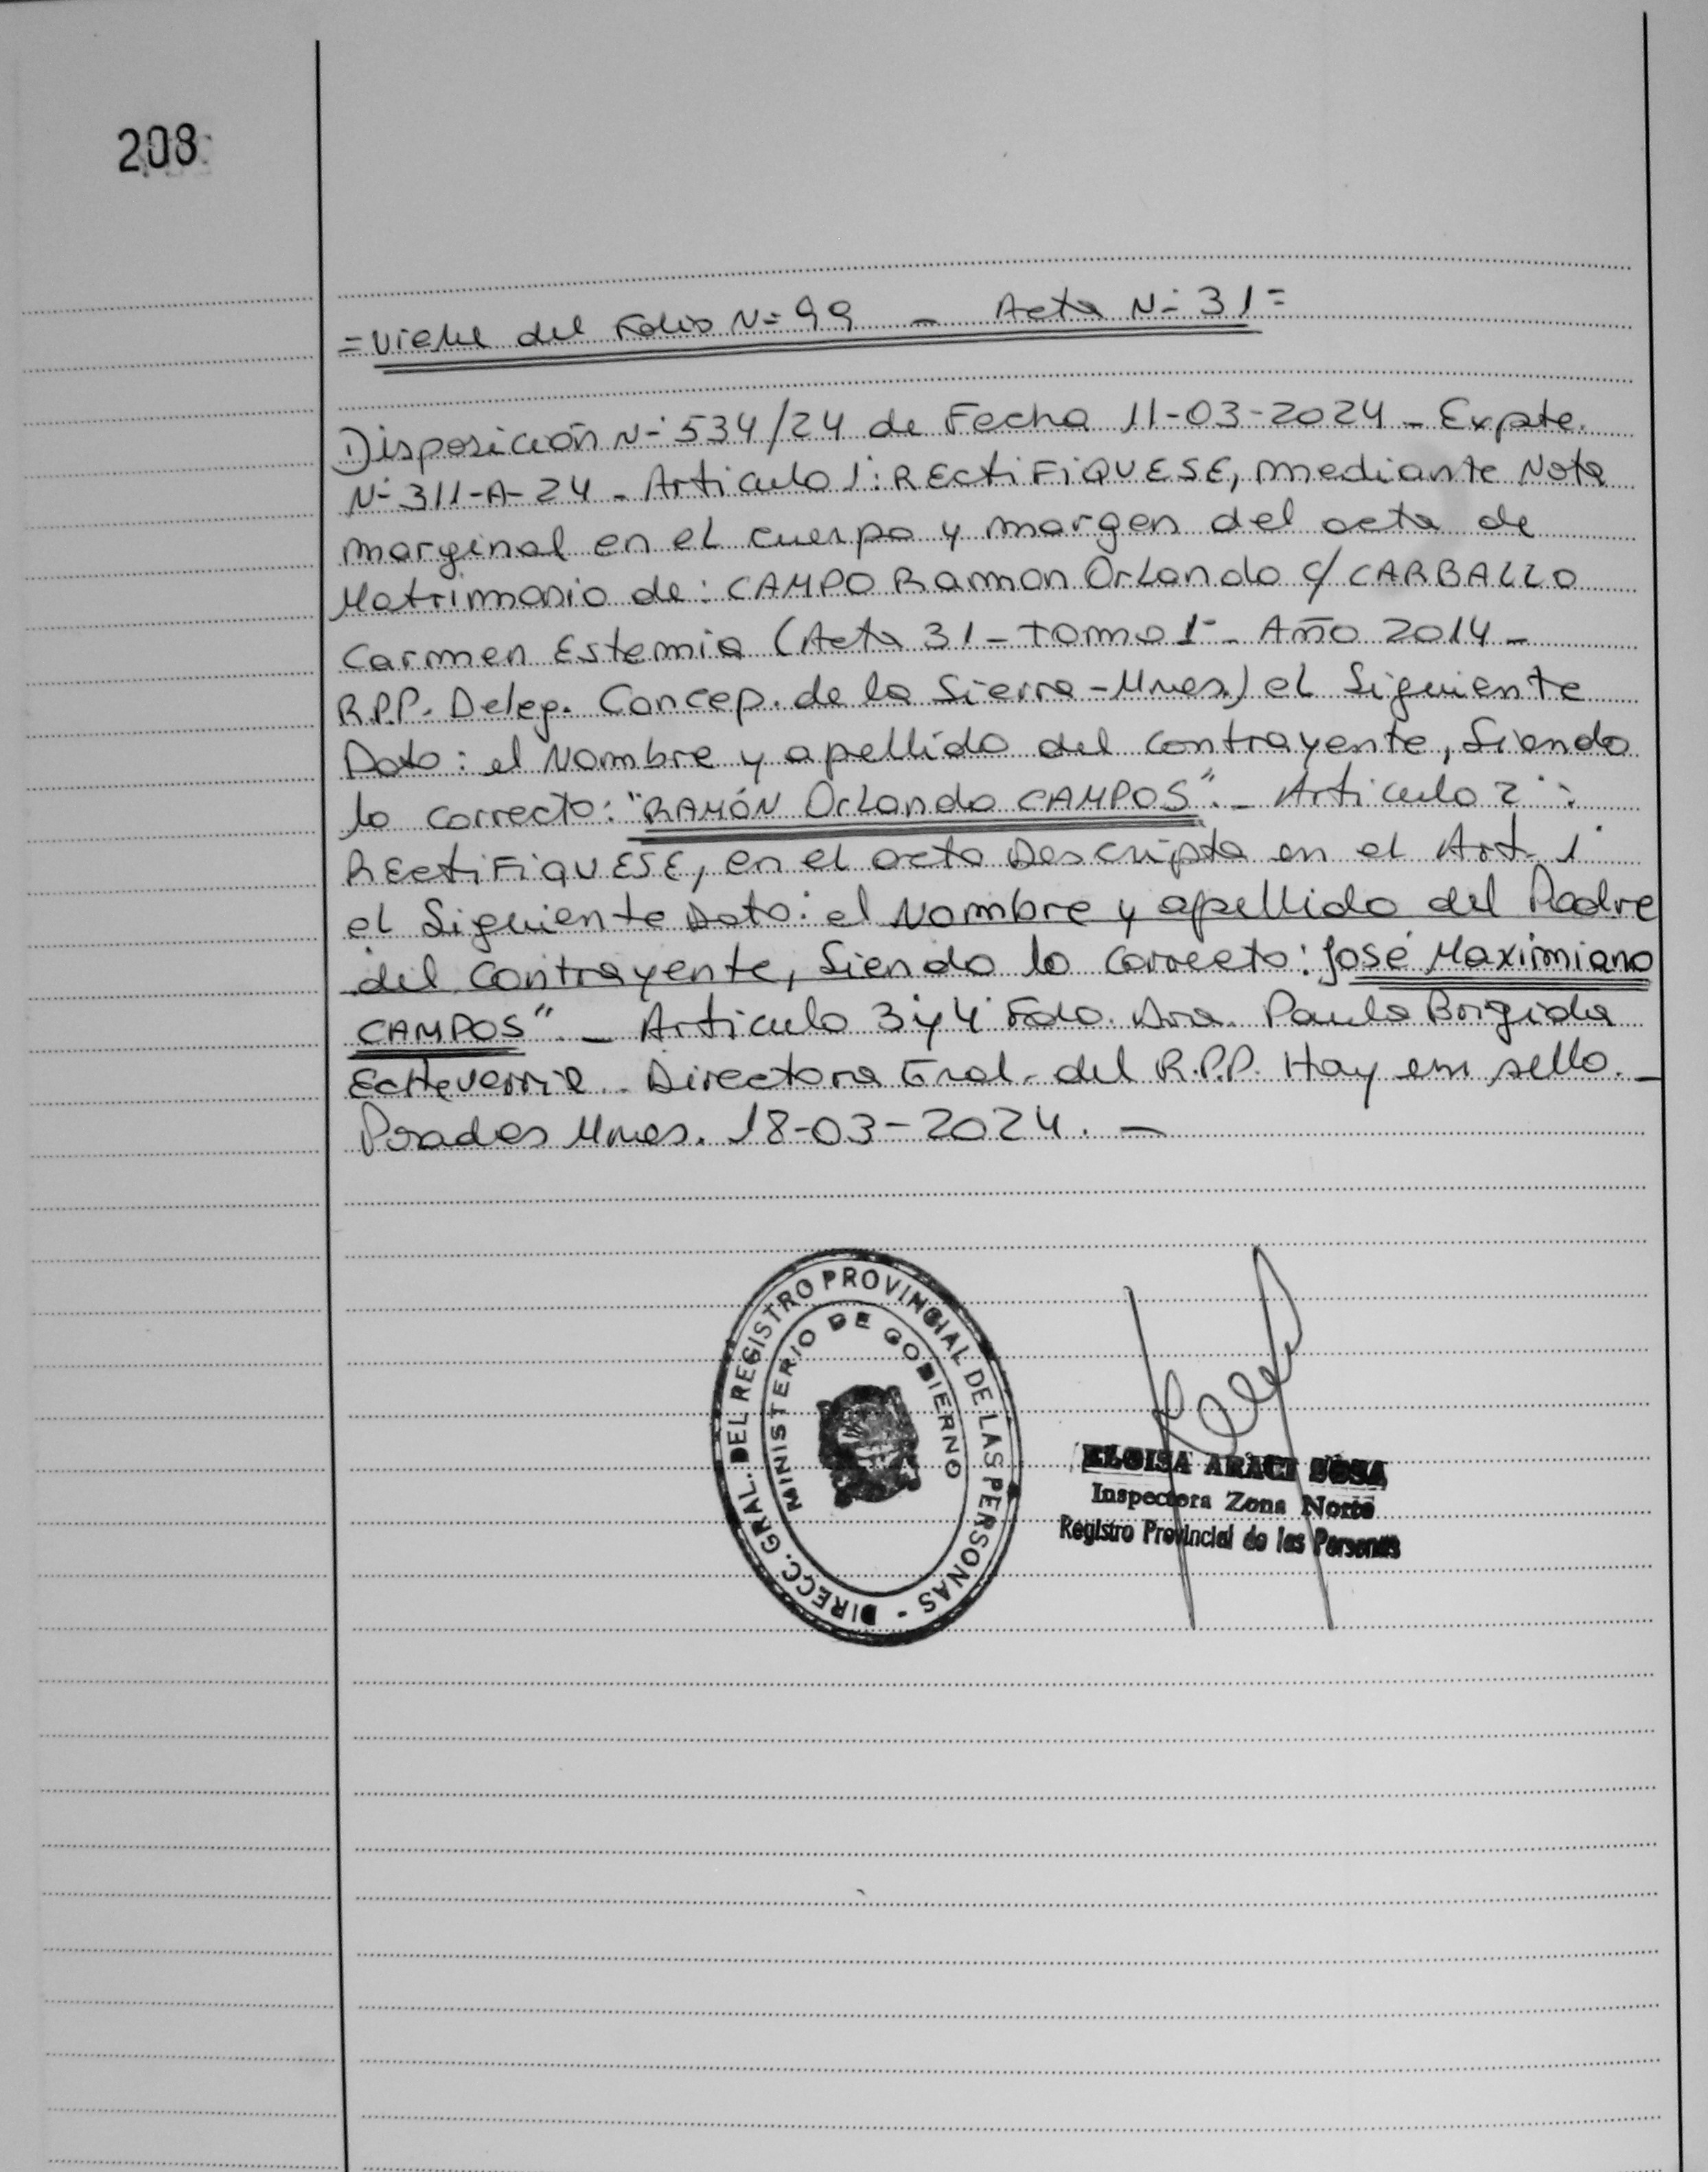 208
= Viene del Folio Nº 99 - Acta Nº 31 =
Disposición Nº 534/24 de Fecha 11-03-2024 - Expte.
Nº 311-A-24 - Articulo 1º: RECTIFIQUESE, mediante Nota
marginal en el cuerpo y margen del acta de
Matrimonio de: CAMPO Ramon Orlando c/ CARBALLO
Carmen Estemia (Acta 31 - Tomo 1º - Año 2014 -
R.P.P. Deleg. Concep. de la Sierra - Mnes.) el Siguiente
Dato: el Nombre y apellido del contrayente, Siendo
lo correcto: "RAMÓN Orlando CAMPOS". - Articulo 2º:
RECTIFIQUESE, en el acta Descripta en el Art. 1º
el Siguiente Dato: el Nombre y apellido del Padre
del Contrayente, Siendo lo Correcto: José Maximiano
CAMPOS". - Articulo 3º y 4º Fdo. Dra. Paula Brigida
Echeverria. Directora Gral. del R.P.P. Hay un sello. -
Posadas Mnes. 18-03-2024. -
DIRECC. GRAL. DEL REGISTRO PROVINCIAL DE LAS PERSONAS -
MINISTERIO DE GOBIERNO
ELOISA ARACI SOSA
Inspectora Zona Norte
Registro Provincial de las Personas